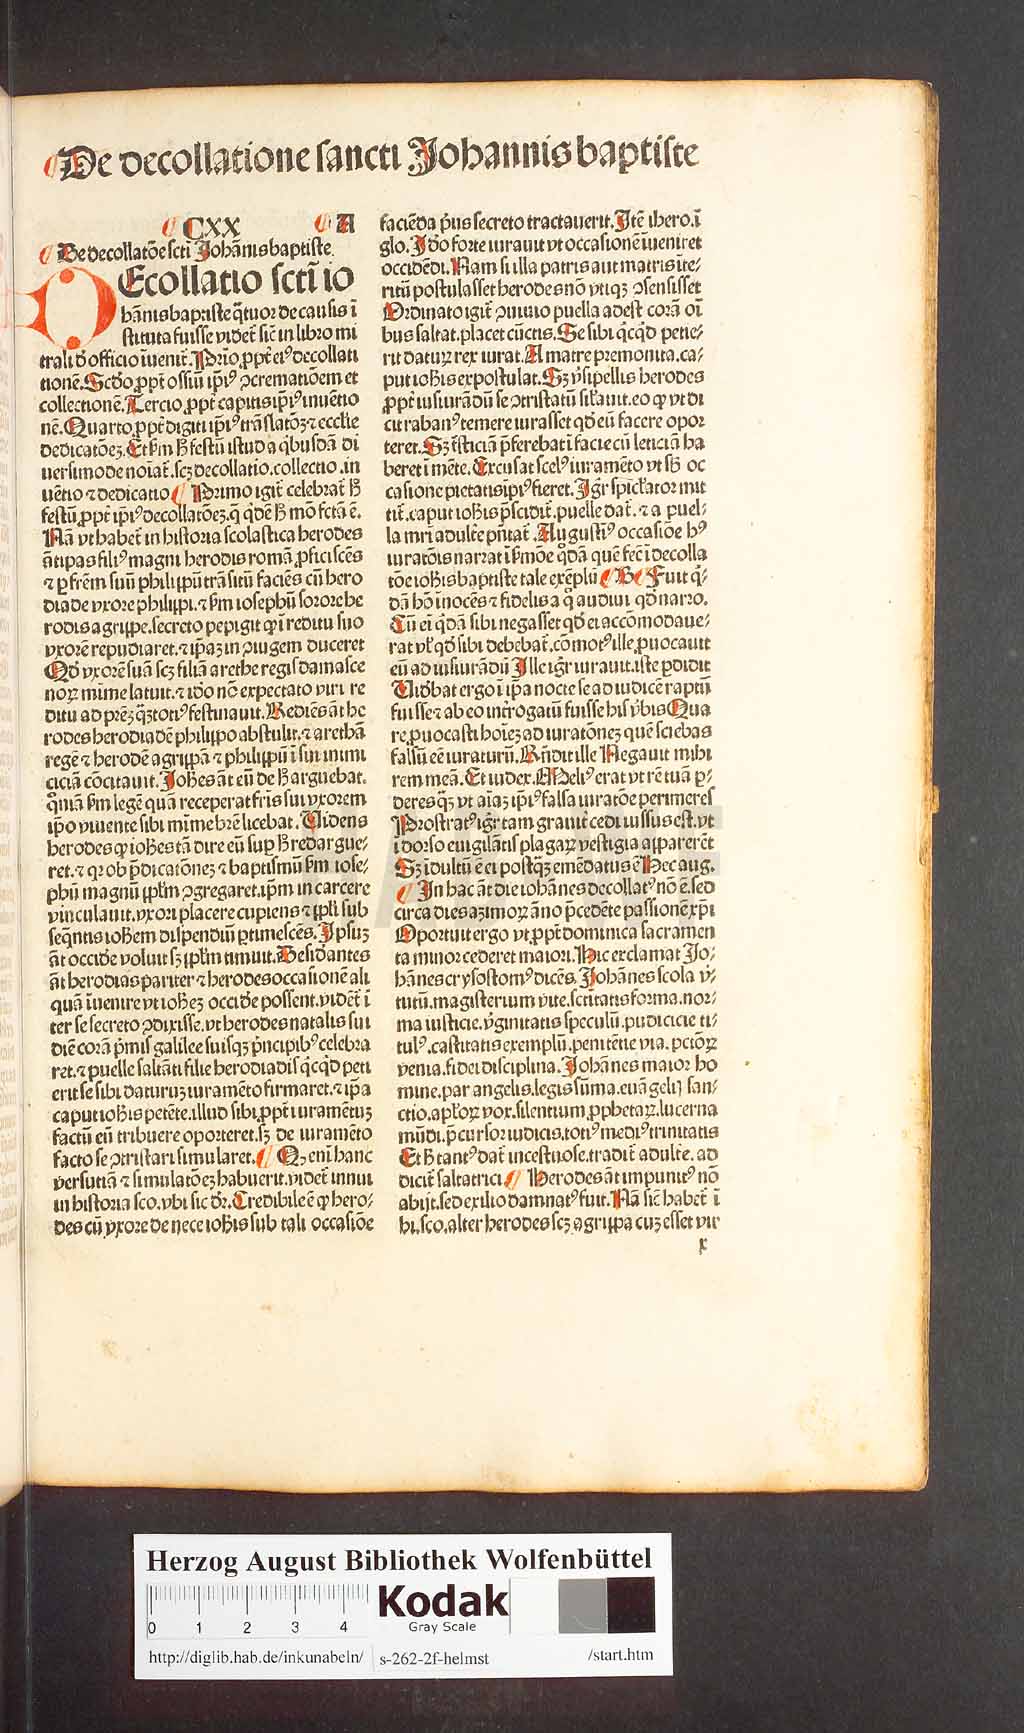 De decollatione sancti Johannis baptiste
CXX A
De decollatōe sctī Johānis baptiste.
DEcollatio sctī io
hānis baptiste q̄tuor de causis ī
stituta fuisse videt᷑ sic̄ in libro mi
trali d̓ officio īuenit᷑. Prīo ꝓpt̄ eiꝰ decollati
tionē. Scd̓o ꝓpt̄ ossiū ip̄iꝰ ↄcrematiōem et
collectionē. Tercio ꝓpt̄ capitis ip̄iꝰ inuētio
nē. Quarto ꝓpt̄ digiti ip̄iꝰ trāslatōꝫ ⁊ eccl̄ie
dedicatōeꝫ. Et ẜm ꝧ festū istud a q̇busdā di
uersimode noīat᷑. scꝫ decollatio. collectio. in
uētio ⁊ dedicatio Primo igit᷑ celebrat᷑ ꝧ
festū ꝓpt̄ ip̄iꝰ decollatōeꝫ. q̄ q̇dē ꝧ mō fctā ē.
Nā vt habet᷑ in historia scolastica herodes
ātipas filiꝰ magni herodis romā ꝓficiscēs
⁊ ꝑ fr̄em suū philippū trāsitū faciēs cū hero
diade vxore philippi. ⁊ ẜm iosephū sorore he
rodis agrippe. secreto pepigit ꝙ ī reditu suo
vxorē repudiaret. ⁊ ip̄aꝫ in ↄiugem duceret
Qd̓ vxorē suā scꝫ filiā arethe regis damasce
noꝝ mīme latuit. ⁊ iō nō expectato viri re
ditu ad pr̄eꝫ q̄ꝫtotiꝰ festinauit. Rediēs āt he
rodes herodiadē philippo abstulit. ⁊ arethā
regē ⁊ herodē agrippā ⁊ philippū ī sui inimi
ciciā cōcitauit. Johēs āt eū de ꝧ arguebat.
q̄niā ẜm legē quā receperat fr̄is sui vxorem
ip̄o viuente sibi mīme hr̄e licebat. Videns
herodes ꝙ ioh̄es tā dire eū suꝑ ꝧ redargue⸗
ret. ⁊ qꝛ ob p̄dicatōneꝫ ⁊ baptismū ẜm iose⸗
phū magnū pp̄lm ↄgregaret. ip̄m in carcere
vinculauit. vxori placere cupiens ⁊ pp̄li sub
seq̄ntis ioh̄em dispendiū ꝑtimescēs. Ipsuꝫ
āt occid̓e voluit sꝫ pp̄lm timuit. Desid̓antes
āt herodias pariter ⁊ herodes occasionē ali
quā īuenire vt ioh̄eꝫ occid̓e possent. videt᷑ ī
ter se secreto ↄdixisse. vt herodes natalis sui
diē corā p̄mis̓ galilee suisqꝫ p̄ncipibꝰ celebra
ret. ⁊ puelle saltāti filie herodiadis̓ q̇cq̇d peti
erit se sibi daturuꝫ iuramēto firmaret. ⁊ ip̄a
caput ioh̄is petēte. illud sibi ꝓpt̄ iuramētuꝫ
factū eū tribuere oporteret. sꝫ de iuramēto
facto se ↄtristari simularet. Qꝫ eni᷑ hanc
versutiā ⁊ simulatōeꝫ habuerit. videt᷑ innui
in historia sco. vbi sic d̓r. Credibile ē ꝙ hero⸗
des cū vxore de nece ioh̄is sub tali occasiōe
faciēda p̄us secreto tractauerit. Itē ihero. ī
glo. Id̓o forte iurauit vt occasionē iueniret
occidēdi. Nam si illa patris aut matris īte⸗
ritū postulasset herodes nō vtiqꝫ ↄsensisset
Ordinato igit᷑ ↄuiuio puella adest corā oī
bus saltat. placet cūctis. Se sibi q̇cq̇d petie⸗
rit datuꝝ rex iurat. A matre premonita. ca⸗
put ioh̄is expostulat. Sꝫ v̓sipellis herodes
ꝓpt̄ iusiurādū se ↄtristatū sil̓auit. eo ꝙ vt di
cit rabanꝰ temere iurasset qd̓ eū facere opor
teret. Sꝫ tr̄iticiā p̄ferebat ī facie cū leticiā ha
beret ī mēte. Excusat scelꝰ iuramēto vt sꝧ oc
casione pietatis ip̄iꝰ fieret. Igr̄ spicl̓ator mit
tit᷑. caput ioh̄is p̄scidit᷑. puelle dat᷑. ⁊ a puel⸗
la mr̄i adult̓e pn̄tat᷑. Augustīꝰ occasiōe hꝰ
iuratōis narrat ī ẜmōe q̇dā quē fec̄ ī decolla
tōe ioh̄is baptiste tale exēplū B Fuit q̇⸗
dā hō īnocēs ⁊ fidelis a q̊ audiui qd̓ narro.
Cū ei q̇dā sibi negasset qd̓ ei accōmodaue⸗
rat vl̓ qd̓ sibi debebat᷑. cōmotꝰ ille ꝓuocauit
eū ad iusiurādū Ille igr̄ iurauit. iste ꝑdidit
Vid̓bat ergo ī ip̄a nocte se ad iudicē raptū
fuisse ⁊ ab eo int̓rogatū fuisse his̓ v̓bis Qua
re ꝓuocasti hoīeꝫ ad iuratōneꝫ quē sciebas
falsū eē iuraturū. Rn̄dit ille Negauit mihi
rem meā. Et iudex. Meliꝰ erat vt rē tuā ꝑ⸗
deres q̄ꝫ vt aīaꝫ ip̄iꝰ falsa iuratōe perimeres
Prostratꝰ igr̄ tam grauit̓ cedi iussus est. vt
i dorso euigilātis̓ plagaꝝ vestigia apparerēt
Sꝫ īdultū ē ei postq̄ꝫ emēdatus ē Hec aug.
In hac āt die iohānes decollatꝰ nō ē. sed
circa dies azimoꝝ āno p̄cedēte passionē xp̄i
Oportuit ergo vt ꝓpt̄ dominica sacramen
ta minor cederet maiori. Hic exclamat Jo⸗
hānes crysostomꝰ dicēs. Johānes scola v̓⸗
tutū. magisterium vite. sctītatis forma. nor⸗
ma iusticie. v̓ginitatis speculū. pudicicie ti⸗
tulꝰ. castitatis exemplū. penitētie via. pctōꝝ
venia. fidei disciplina. Johānes maior ho
mine. par angelis. legis sūma. euāgelij san⸗
ctio. apl̓oꝝ vox. silentium ꝓphetaꝝ. lucerna
mūdi. p̄cursor iudicis. totiꝰ mediꝰ trinitatis
Et ꝧ tantꝰ dat᷑ incestuose. tradit᷑ adult̓e. ad
dicit᷑ saltatrici Herodes āt impunitꝰ nō
abijt. sed exilio damnatꝰ fuit. Nā sic̄ habet᷑ ī
hi. sco. alter herodes scꝫ agrippa cuꝫ esset vir
x
HAB WF
Herzog August Bibliothek Wolfenbüttel
0 1 2 3 4
Kodak
Gray Scale
http://diglib.hab.de/inkunabeln/ s-262-2f-helmst /start.htm